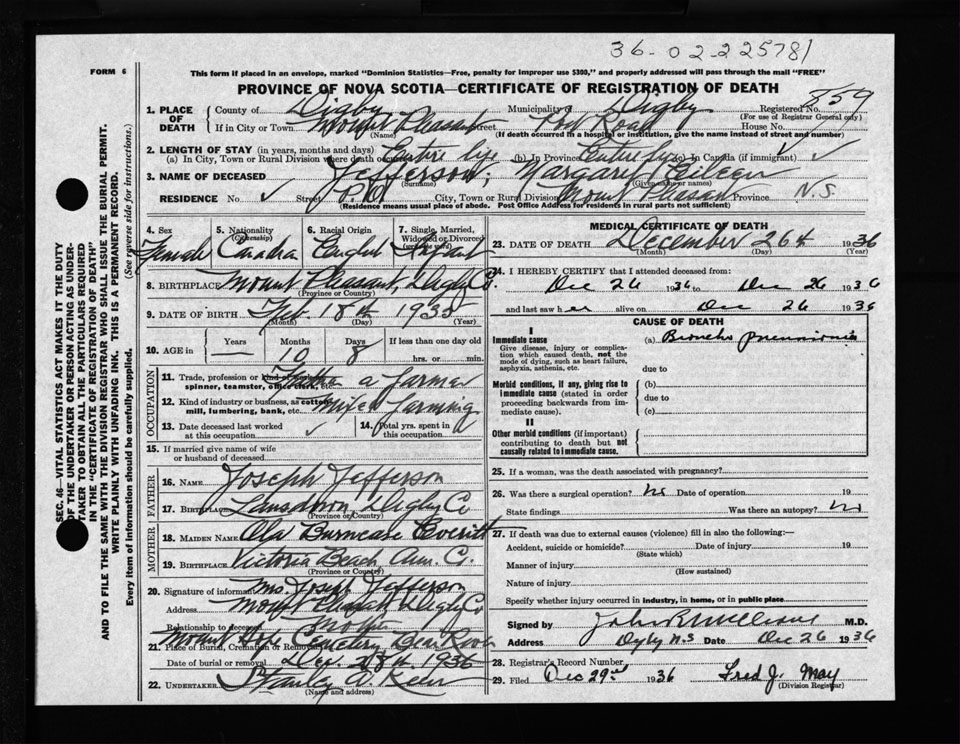 36-02-225781
FORM 6
This form if placed in an envelope, marked "Dominion Statistics—Free, penalty for improper use $300," and properly addressed will pass through the mail "FREE"
PROVINCE OF NOVA SCOTIA—CERTIFICATE OF REGISTRATION OF DEATH
1. PLACE OF DEATH County of Digby Municipality of Digby Registered No. 859
(For use of Registrar General only)
If in City or Town Mount Pleasant Street House No.
(Name) (If death occurred in a hospital or institution, give the name instead of street and number)
2. LENGTH OF STAY (in years, months and days)
(a) In City, Town or Rural Division where death occurred Entire life (b) In Province Entire life (c) In Canada (if immigrant) ✓
3. NAME OF DECEASED Jefferson, Margaret Eileen
(Surname) (Given name or names)
RESIDENCE No. ✓ Street P.O. City, Town or Rural Division Mount Pleasant Province N.S.
(Residence means usual place of abode. Post Office Address for residents in rural parts not sufficient)
4. Sex 5. Nationality (Citizenship) 6. Racial Origin 7. Single, Married, Widowed or Divorced (write the word)
Female Canadia English Infant
8. BIRTHPLACE Mount Pleasant, Digby Co.
(Province or Country)
9. DATE OF BIRTH Feb. 18th 1935
(Month) (Day) (Year)
10. AGE in Years Months Days If less than one day old
— 10 8 hrs. or min.
OCCUPATION
11. Trade, profession or kind of work as spinner, teamster, office clerk, etc. Father a farmer
12. Kind of industry or business, as cotton mill, lumbering, bank, etc. Mixed farming
13. Date deceased last worked at this occupation ✓ 14. Total yrs. spent in this occupation
15. If married give name of wife or husband of deceased
FATHER
16. NAME Joseph Jefferson
17. BIRTHPLACE Lansdown, Digby Co
(Province or Country)
MOTHER
18. MAIDEN NAME Ola Everitt
19. BIRTHPLACE Victoria Beach, Ann. Co.
(Province or Country)
20. Signature of informant Mrs. Joseph Jefferson
Address Mount Pleasant Digby Co
Relationship to deceased Mother
21. Place of Burial, Cremation or Removal Mount Hope Cemetery Bear River
Date of burial or removal Dec. 28th 1936
22. UNDERTAKER Stanley A.
(Name and address)
MEDICAL CERTIFICATE OF DEATH
23. DATE OF DEATH December 26th 1936
(Month) (Day) (Year)
24. I HEREBY CERTIFY that I attended deceased from:
Dec 26 1936 to Dec 26 1936
and last saw her alive on Dec 26 1936
CAUSE OF DEATH
I
Immediate cause (a) Broncho pneumonia
Give disease, injury or complication which caused death, not the mode of dying, such as heart failure, asphyxia, asthenia, etc.
due to
Morbid conditions, if any, giving rise to immediate cause (stated in order proceeding backwards from immediate cause).
(b)
due to
(c)
II
Other morbid conditions (if important) contributing to death but not causally related to immediate cause.
25. If a woman, was the death associated with pregnancy?
26. Was there a surgical operation? No Date of operation 19
State findings Was there an autopsy? No
27. If death was due to external causes (violence) fill in also the following:—
Accident, suicide or homicide? Date of injury 19
(State which)
Manner of injury
(How sustained)
Nature of injury
Specify whether injury occurred in industry, in home, or in public place
Signed by M.D.
Address Digby N.S Date Dec 26 1936
28. Registrar's Record Number
29. Filed Dec 29th 1936 Fred J. May
(Division Registrar)
SEC. 46—VITAL STATISTICS ACT MAKES IT THE DUTY
OF THE UNDERTAKER OR PERSON ACTING AS UNDER-
TAKER TO OBTAIN ALL THE PARTICULARS REQUIRED
IN THE "CERTIFICATE OF REGISTRATION OF DEATH"
AND TO FILE THE SAME WITH THE DIVISION REGISTRAR WHO SHALL ISSUE THE BURIAL PERMIT.
WRITE PLAINLY WITH UNFADING INK. THIS IS A PERMANENT RECORD.
Every item of information should be carefully supplied. (See reverse side for instructions.)